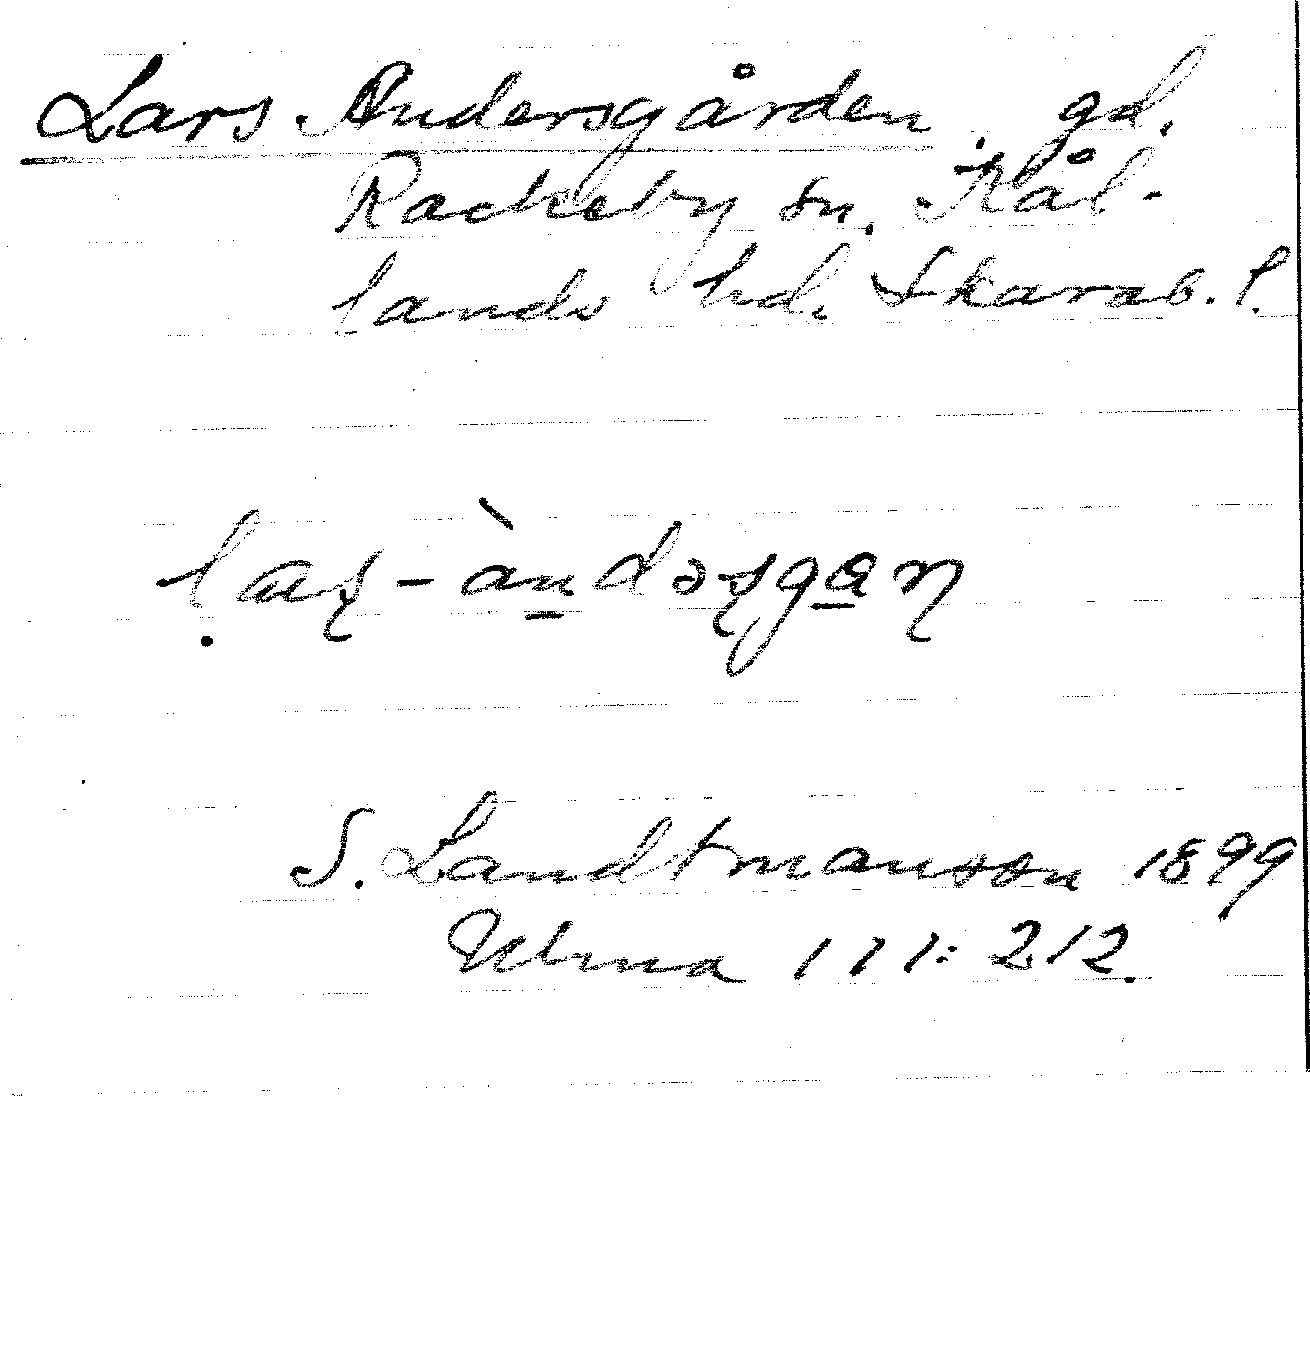 Lars Andersgården, gd.
Rackeby sn. Kål-
lands hd. Skarab. l.
laʂ-àndəʂgaɳ
S. Landtmanson 1899
Ulma 111:212.